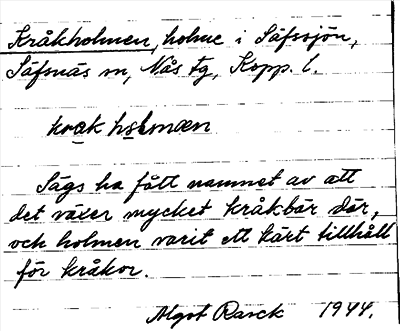 Kråkholmen, holme i Säfssjön,
Säfsnäs sn, Nås tg, Kopp. l.
kråk hɔlmæn
Sägs ha fått namnet av att
det växer mycket kråkbär där,
och holmen varit ett kärt tillhåll
för kråkor.
Algot Rasck 1944.